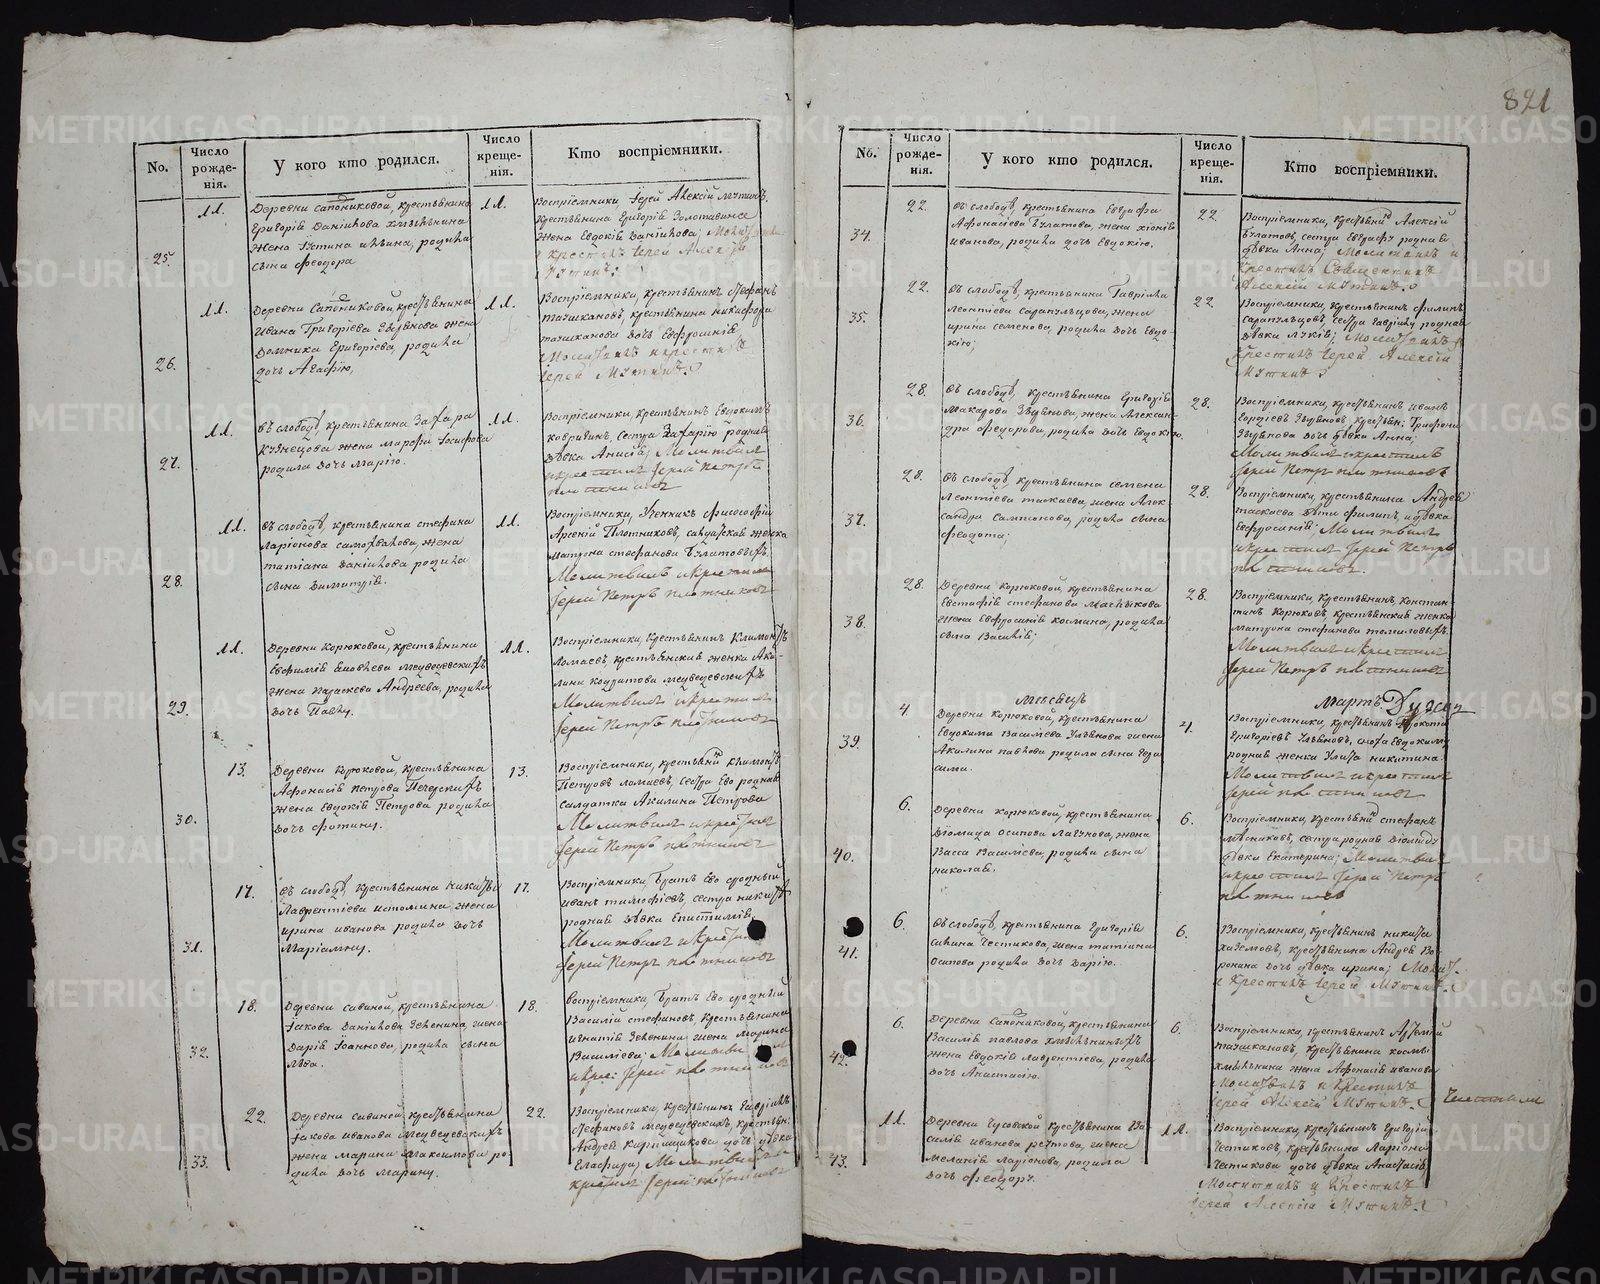 821
No.
Число рожде-нія.
У кого кто родился.
Число креще-нія.
Кто воспріемники.
11.
Деревни Сапониковой, крестьянина
Григорія Даніилова
жена Устина Ильина, родила
сына Феодора
11.
Воспріемники Іерей Алексій Мутинъ,
крестьянина Григорія Золотавина
жена Евдокія Даніилова;
и крестилъ Іерей Алексій
Мутинъ
25.
11.
Деревни Сапониковой крестьянина
Ивана Григоріева жена
Домника Григорьева, родила
дочь Агафію,
11.
Воспріемники, крестьянинъ Стефанъ
Ташкановъ, крестьянина Никифора
Ташканова дочь Евфросинія
Молитвилъ и крестилъ
Іерей Мутинъ
26.
11.
Въ слободѣ, крестьянина Захара
Кузнецова жена Марфа Іосифова
родила дочь Марію.
11.
Воспріемники, крестьянинъ Евдокимъ
Ковригинъ, сестра Захарію родная
дѣвка Анисія, Молитвилъ
и крестилъ Іерей Петръ
Плотниковъ
27.
11.
Въ слободѣ, крестьянина Стефана
Ларіонова Самохвалова, жена
Татіана Даніилова родила
сына Димитрія.
11.
Воспріемники, Ученикъ философіи
Арсеній Плотниковъ, солдатская женка
Матрона Стефанова Булатовыхъ
Молитвилъ и крестилъ
Іерей Петръ Плотниковъ
28.
11.
Деревни Корюковой, крестьянина
Евфимія Яковлева Медведевскихъ
жена Параскева Андреева, родила
дочь Павлу.
11.
Воспріемники, крестьянинъ Климонтъ
Ломаевъ, крестьянская женка Аку-
лина Кодратова Медведевскихъ
Молитвилъ и крестилъ
Іерей Петръ Плотниковъ
29.
13.
Деревни Корюковой, крестьянина
Афонасія Петрова Печерскихъ
жена Евдокія Петрова родила
дочь Фотину.
13.
Воспріемники, крестьянинъ Климонтъ
Петровъ Ломаевъ, сестра Его родная
солдатка Акилина Петрова
Молитвилъ и крестилъ
Іерей Петръ Плотниковъ
30.
17.
Въ слободѣ, крестьянина Никиты
Лаврентіева Истомина, жена
Ирина Иванова родила дочь
Маріамну.
17.
Воспріемники, братъ Его сродный
Иванъ Тимофіевъ, сестра Никитѣ
родная дѣвка Епистимія,
Молитвилъ и крестилъ
Іерей Петръ Плотниковъ
31.
18.
Деревни Савиной, крестьянина
Іакова Даніилова Зеленина, жена
Дарія Іоаннова, родила сына
Льва.
18.
Воспріемники, братъ Его сродный
Василій Стефановъ, крестьянина
Игнатія Зеленина жена Марина
Василіева;
и крес: Іерей Плотниковъ
32.
22.
Деревни Савиной крестьянина
Іакова Иванова Медведевскихъ
жена Марина Максимова ро-
дила дочь Марину.
22.
Воспріемники, крестьянинъ Гавріилъ
Стефановъ Медведевскихъ, крестьян:
Андрея Кирпищикова дочь дѣвка
Гликерія; Молитвилъ и
крестилъ Іерей Плотниковъ
33.
No.
Число рожде-нія.
У кого кто родился.
Число креще-нія.
Кто воспріемники.
22.
Въ слободѣ, крестьянина Евграфа
Афонасіева Булатова, жена Хіонія
Иванова, родила дочь Евдокію.
22.
Воспріемники, крестьянинъ Алексій
Булатовъ, сестра Евграфу родная
дѣвка Анна; Молитвилъ и
крестилъ Священникъ
Алексій Мутинъ.
34.
22.
Въ слободѣ, крестьянина Гавріила
Леонтіева Сарапульцова, жена
Ирина Семенова, родила дочь Евдо-
кію;
22.
Воспріемники, крестьянинъ Филипъ
Сарапульцовъ, сестра Гавріилу родная
дѣвка Лукія; Молитвилъ и
крестилъ Іерей Алексій
Мутинъ
35.
28.
Въ слободѣ, крестьянина Григорія
Макарова Зырянова, жена Алексан-
дра Федорова, родила дочь Евдокію.
28.
Воспріемники, крестьянинъ Иванъ
Гордіевъ Зыряновъ, крестьян: Трифона
Зырянова дочь дѣвка Анна;
Молитвилъ и крестилъ
Іерей Петръ Плотниковъ
36.
28.
Въ слободѣ, крестьянина Семена
Леонтіева Таскаева, жена Алек
сандра Самсонова, родила сына
Феодота;
28.
Воспріемники, крестьянина Андрея
Таскаева дѣти Филипъ, и дѣвка
Евфросинія; Молитвилъ
и крестилъ Іерей Петръ
Плотниковъ.
37.
28.
Деревни Корюковой, крестьянина
Евстафія Стефанова
жена Евфросинія Козмина, родила
сына Василія;
28.
Воспріемники, крестьянинъ, Констан-
тинъ Корюковъ, крестьянская женка
Матрона Стефанова Томиловыхъ.
Молитвилъ и крестилъ
Іерей Петръ Плотниковъ
38.
Мѣсяцъ
Мартъ
4.
Деревни Корюковой, крестьянина
Евдокима Василіева Ульянова жена
Акилина Павлова родила сына Гера
сима.
4.
Воспріемники, крестьянинъ Прокопій
Григоріевъ Ульяновъ, сноха Евдокиму
родная женка Улита Никитина.
Молитвилъ и крестилъ
Іерей Плотниковъ
39.
6.
Деревни Корюковой, крестьянина
Діомида Осипова Лагунова, жена
Васса Василіева, родила сына
Николая.
6.
Воспріемники, крестьянинъ Стефанъ
Мѣсниковъ, сестра родная Діомиду
дѣвка Екатерина; Молитвилъ
и крестилъ Іерей Петръ
Плотниковъ
40.
6.
Въ слободѣ, крестьянина Григорія
Силина Честикова, жена Татіана
Осипова родила дочь Дарію.
6.
Воспріемники, крестьянинъ Никита
крестьянина Андрея Во-
ронина дочь дѣвка Ирина; Молит.
и крестилъ Іерей Мутинъ.
41.
6.
Деревни Сапониковой, крестьянина
Василія Павлова
жена Евдокія Лаврентіева, родила
дочь Анастасію.
6.
Воспріемники, крестьянинъ Артемій
Ташкановъ, крестьянина Космы
жена Афонасія Иванова
Молитвилъ и крестилъ
Іерей Алексій Мутинъ.
42.
11.
Деревни Чусовской крестьянина Ва-
силія Иванова Речтова, жена
Меланія Ларіонова, родила
дочь Феодору.
11.
Воспріемники, крестьянинъ Григорій
Честиковъ, крестьянина Ларіона
Честикова дочь дѣвка Анастасія,
Молитвилъ и крестилъ
Іерей Алексій Мутинъ.
43.
METRIKI.GASO-URAL.RU